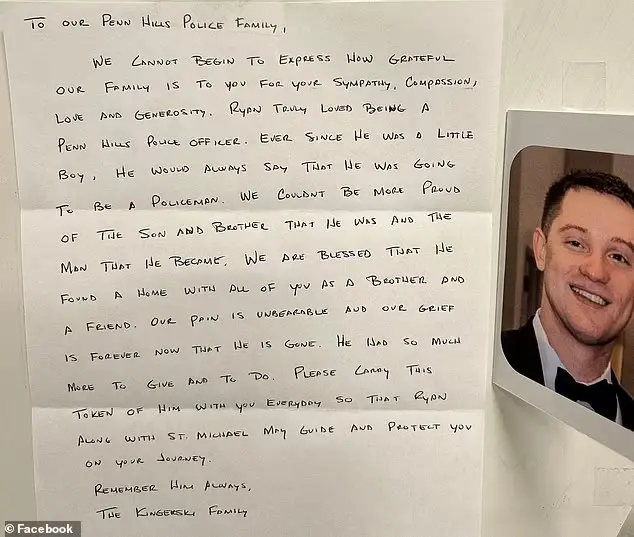 To our Penn Hills Police Family,
We cannot begin to express how grateful
our family is to you for your sympathy, compassion,
love and generosity. Ryan truly loved being a
Penn Hills Police Officer. Ever since he was a little
boy, he would always say that he was going
to be a policeman. We couldnt be more proud
of the son and brother that he was and the
man that he became. We are blessed that he
found a home with all of you as a brother and
a friend. Our pain is unbearable and our grief
is forever now that he is gone. He had so much
more to give and to do. Please carry this
token of him with you everyday so that Ryan
along with St. Michael may guide and protect you
on your journey.
Remember him always,
The Kingerski Family
© Facebook